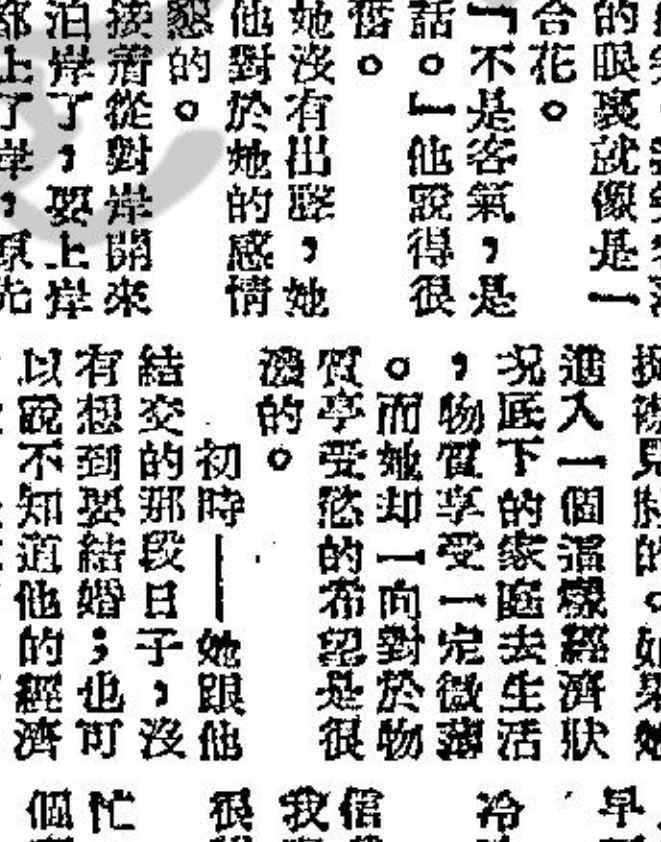 的眼裏就像是一
合花。
『不是客氣，是
話。』他說得很
她沒有出聲，她
他對於她的感情
懇的。
接着從對岸開來
泊岸了，要上岸
進入一個這樣經濟狀
况底下的家庭去生活
，物質享受一定微薄
。而她却一向對於物
質享受慾的希望是很
的。
初時——她跟他
結交的那段日子，沒
有想到要結婚；也可
以說不知道他的經濟
早
冷
信
我
很
忙
個